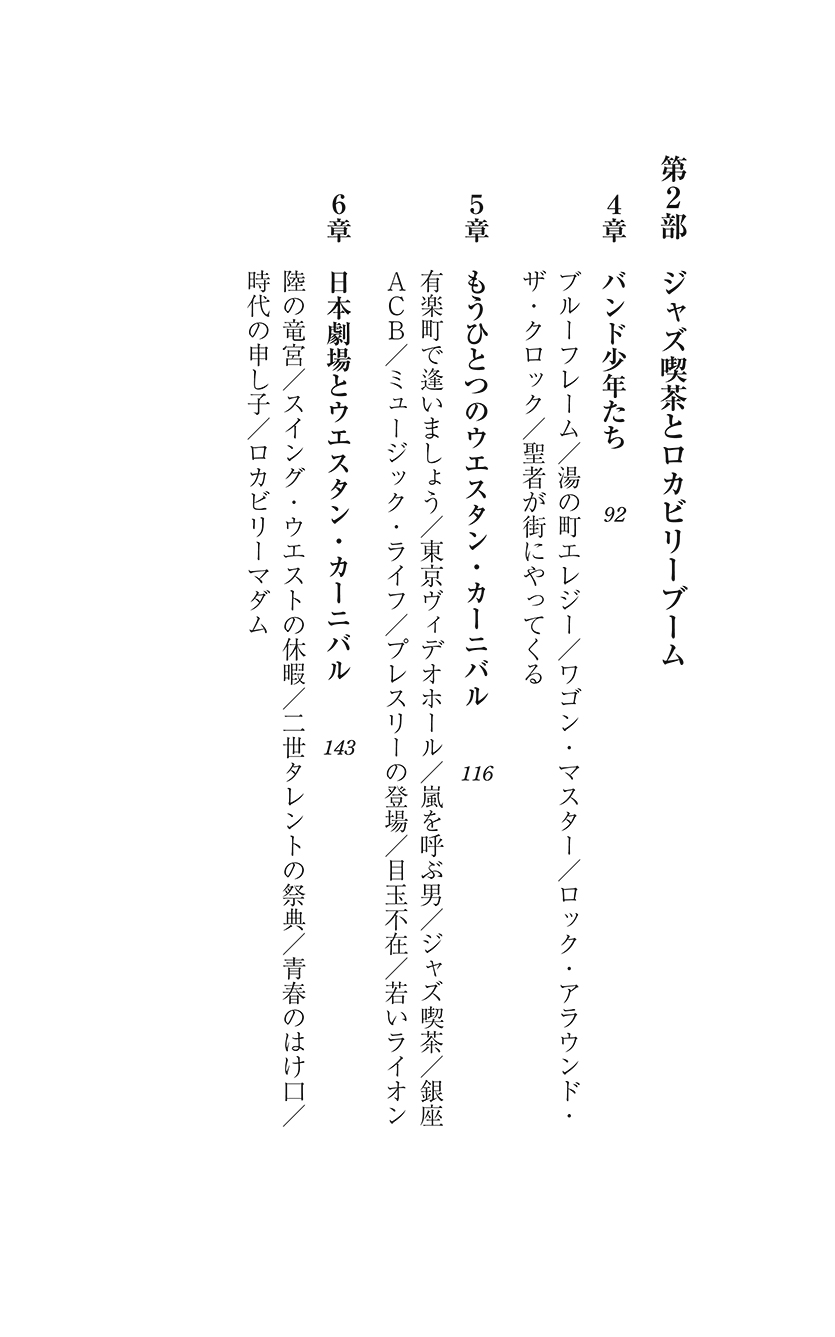 第2部　ジャズ喫茶とロカビリーブーム
4章　バンド少年たち　92
ブルーフレーム／湯の町エレジー／ワゴン・マスター／ロック・アラウンド・
ザ・クロック／聖者が街にやってくる
5章　もうひとつのウエスタン・カーニバル　116
有楽町で逢いましょう／東京ヴィデオホール／嵐を呼ぶ男／ジャズ喫茶／銀座
ACB／ミュージック・ライフ／プレスリーの登場／目玉不在／若いライオン
6章　日本劇場とウエスタン・カーニバル　143
陸の竜宮／スイング・ウエストの休暇／二世タレントの祭典／青春のはけ口／
時代の申し子／ロカビリーマダム